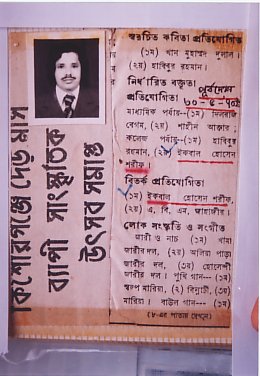 কিশোরগঞ্জে দেড় মাস
ব্যাপী সংস্কৃতিক
উৎসব সমাপ্ত
স্বরচিত কবিতা প্রতিযোগিতা
(১ম) খান মুহাম্মদ দুলাল।
(২য়) হাবিবুর রহমান।
নির্ধারিত বক্তৃতা
পূর্বদেশ
প্রতিযোগিতা
মাধ্যমিক পর্যায়—(১ম) দিলরাজ
বেগম, (২য়) শাহীন আক্তার;
কলেজ পর্যায়—(১ম) হাবিবুর
রহমান, (২য়) ইকবাল হোসেন
শরীফ।
বিতর্ক প্রতিযোগিতা
(১ম) ইকবাল হোসেন শরীফ,
(২য়) এ, বি, এম, জাহাঙ্গীর।
লোক সংস্কৃতি ও সংগীত
জারী ও নাচ (১ম) খামা
জারীর দল, (২য়) অলিয়া পাড়া
জারীর দল, (৩য়) হোসেন্দী
জারীর দল। পুথি গান—(১ম)
স্বল্প মারিয়া, (২) বিন্নাটী, (৩য়)
মারিয়া। বাউল গান—(১ম)
(৮-এর পাতায় দেখুন)